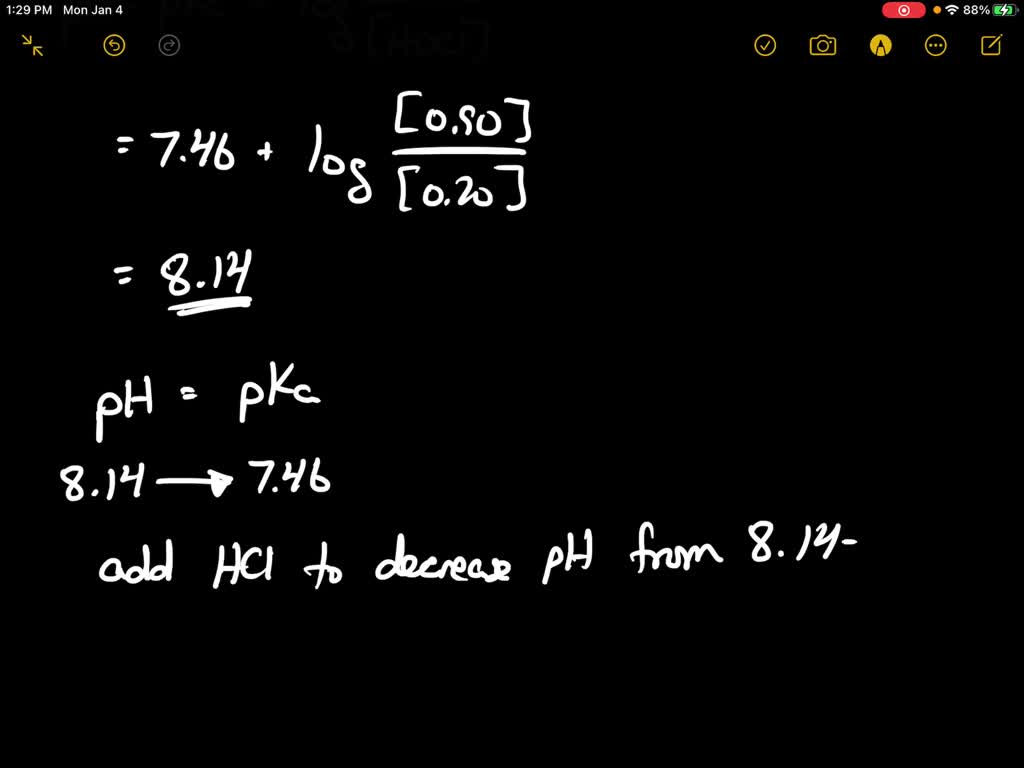 1:29 PM Mon Jan 4 88%
[HOCl]
= 7.46 + log [0.90]
[0.20]
= 8.14
pH = pKa
8.14 → 7.46
add HCl to decrease pH from 8.14-